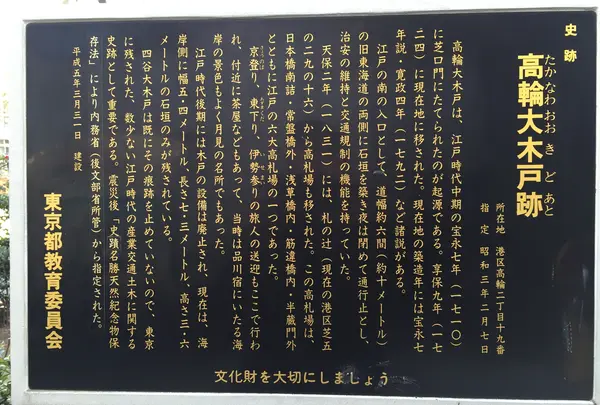 史跡
高輪大木戸跡
たかなわおおきどあと
所在地 港区高輪二丁目十九番
指定 昭和三年二月七日
高輪大木戸は、江戸時代中期の宝永七年（一七一〇）
に芝口門にたてられたのが起源である。享保九年（一七
二四）に現在地に移された。現在地の築造年には宝永七
年説・寛政四年（一七九二）など諸説がある。
江戸の南の入口として、道幅約六間（約十メートル）
の旧東海道の両側に石垣を築き夜は閉めて通行止とし、
治安の維持と交通規制の機能を持っていた。
天保二年（一八三一）には、札の辻（現在の港区芝五
の二九の十六）から高札場も移された。この高札場は、
日本橋南詰・常盤橋外・浅草橋内・筋違橋内・半蔵門外
とともに江戸の六大高札場の一つであった。
京登り、東下り、伊勢参りの旅人の送迎もここで行わ
れ、付近に茶屋などもあって、当時は品川宿にいたる海
岸の景色もよく月見の名所でもあった。
江戸時代後期には木戸の設備は廃止され、現在は、海
岸側に幅五・四メートル、長さ七・三メートル、高さ三・六
メートルの石垣のみが残されている。
四谷大木戸は既にその痕跡を止めていないので、東京
に残された、数少ない江戸時代の産業交通土木に関する
史跡として重要である。震災後「史蹟名勝天然紀念物保
存法」により内務省（後文部省所管）から指定された。
平成五年三月三一日 建設
東京都教育委員会
文化財を大切にしましょう